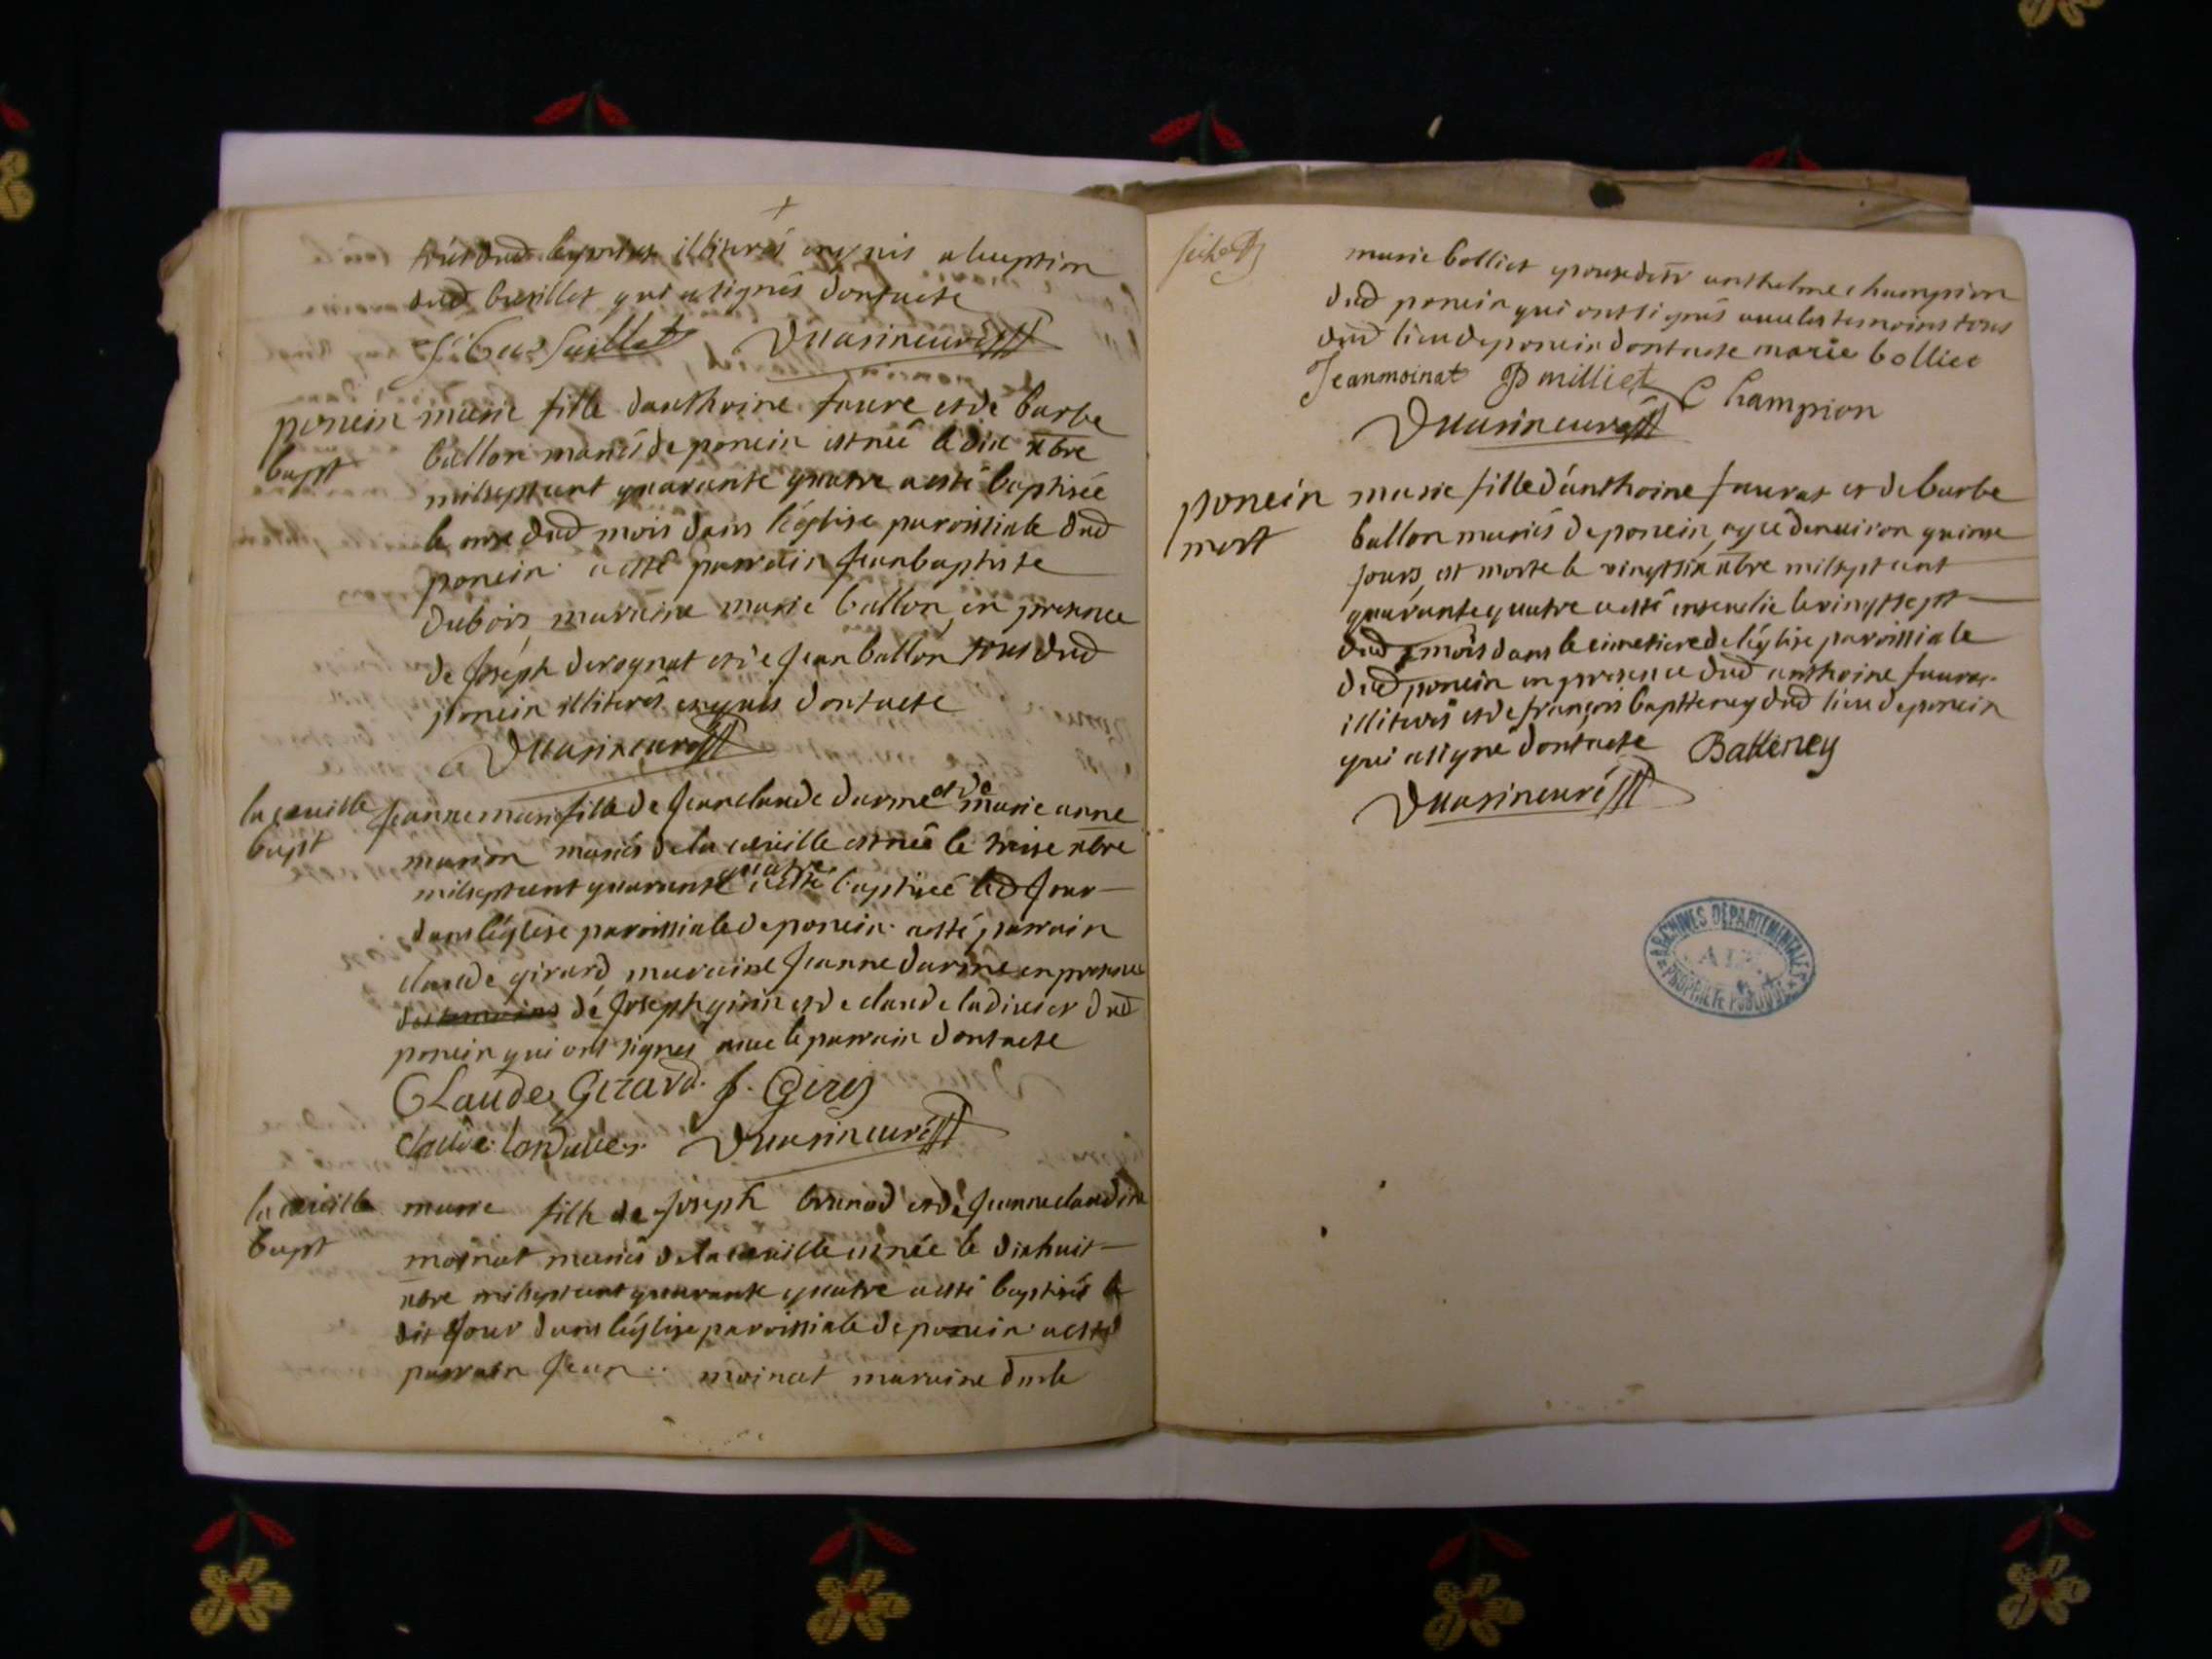 tous dud leyriat illiterés enquis a lexception
dud buillet qui a signés dont acte
ponein marie fille danthoine faure et de barbe
bapt ballon mariés de ponein est née le dix xbre
milseptcent quarante quatre a esté baptisée
le onze dud mois dans l'église paroissiale dud
ponein a esté parrain Jean baptiste
dubois, maraine marie ballon, en presence
de Joseph derognat et de Jean ballon tous dud
ponein illiterés enquis dont acte
la cueille Jeanne marie fille de Jean claude darme et de marie anne
bapt marion mariés de la cueille est née le treise xbre
milseptcent quarante quatre a esté baptisée led Jour
dans léglise paroissiale de ponein a esté parrain
claude girard maraine Jeanne darme en presence
des temoins de Joseph girin et de claude ladivier dud
ponein qui ont signés avec le parrain dont acte
Claude Girard. J. Giren
Claude
la cueille marie fille de Joseph brunod et de Jeanne claudine
bapt moinat mariés de la cueille est née le dixhuit
xbre milseptcent quarante quatre a esté baptisée le
dit Jour dans léglise paroissiale de ponein a esté
parrain Jean moinat maraine dmle
marie bolliet epouse de sr anthelme champion
dud ponein qui ont signés avec les temoins tous
dud lieu de ponein dont acte marie bolliet
Jean moinat P milliet Champion
ponein marie fille d'anthoine fauras et de barbe
mort ballon mariés de ponein, agée denviron quinse
Jours, est morte le vingt six xbre milseptcent
quarante quatre a esté ensevelie le vingt sept
dud mois dans le cimetiere de léglise paroissiale
dud ponein en presence dud anthoine fauras
illiterés et de françois bapt teney dud lieu de ponein
qui a signé dont acte Batteney
ARCHIVES DÉPARTEMENTALES
AIN
PROPRIÉTÉ PUBLIQUE